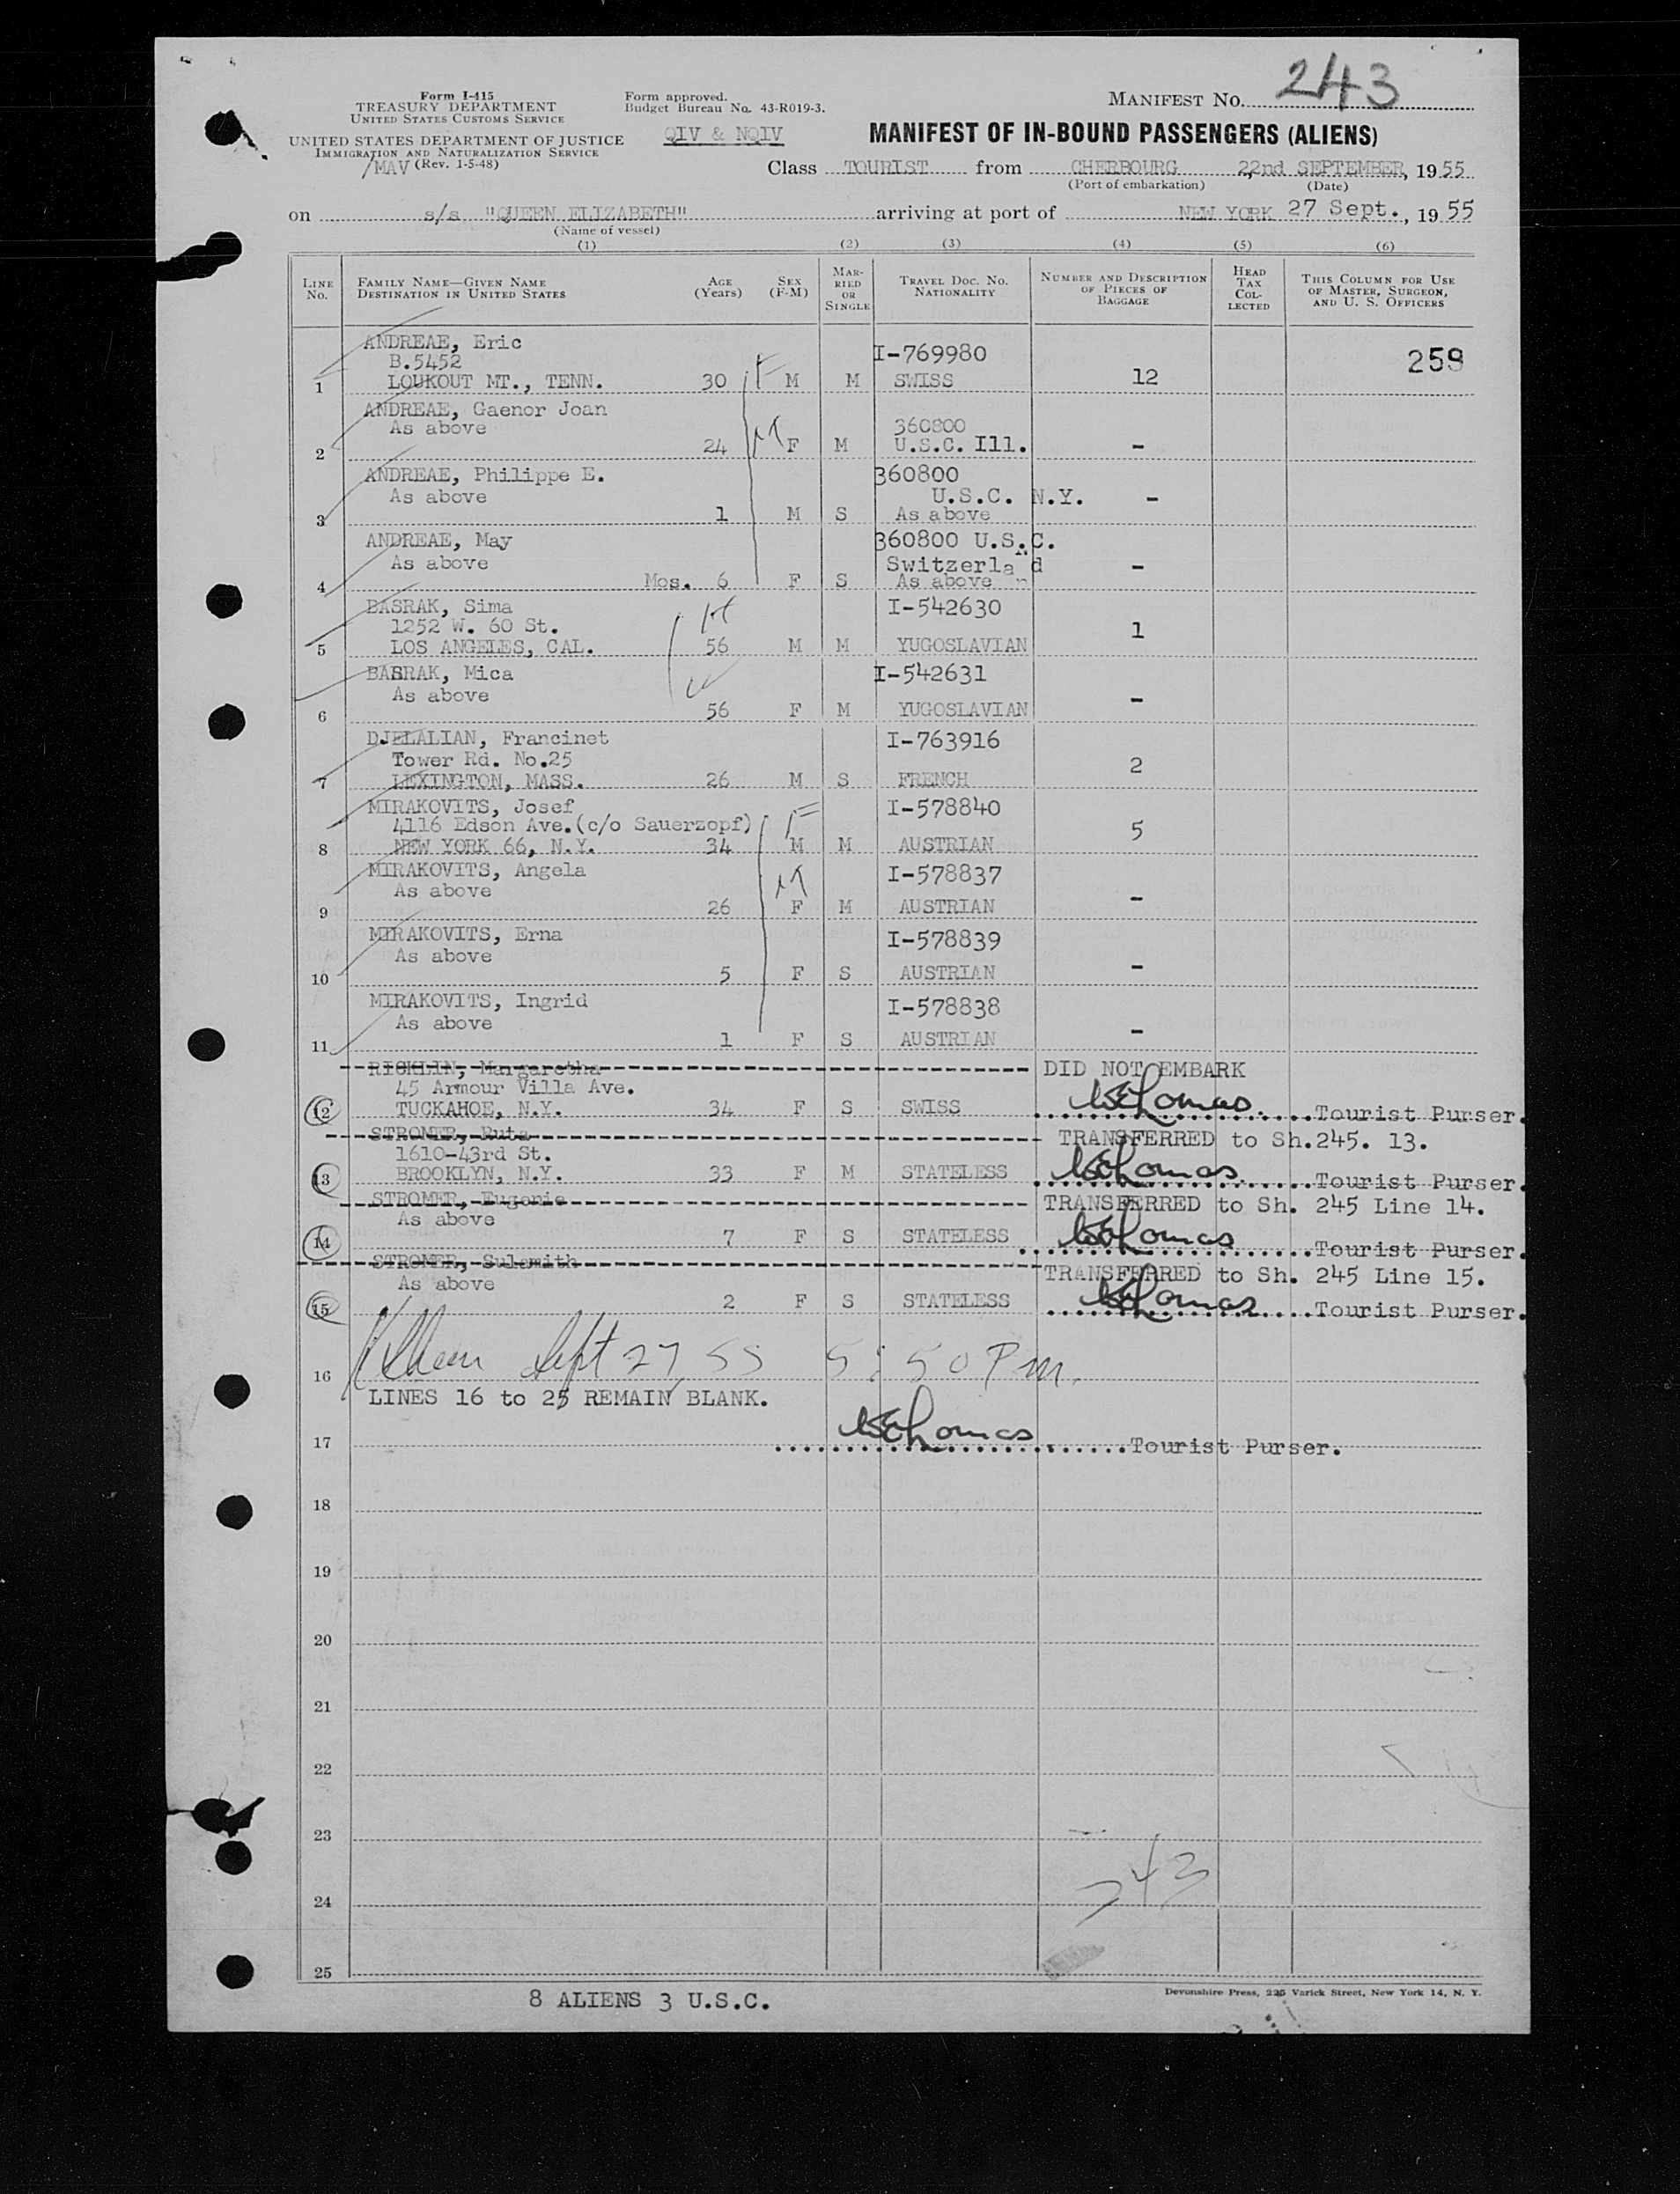 Form I-415
TREASURY DEPARTMENT
UNITED STATES CUSTOMS SERVICE
UNITED STATES DEPARTMENT OF JUSTICE
IMMIGRATION AND NATURALIZATION SERVICE
/MAV (Rev. 1-5-48)
Form approved.
Budget Bureau No. 43-R019-3.
QIV & NQIV
MANIFEST NO. 243
MANIFEST OF IN-BOUND PASSENGERS (ALIENS)
Class TOURIST from CHERBOURG 22nd SEPTEMBER, 1955
(Port of embarkation) (Date)
on s/s "QUEEN ELIZABETH" arriving at port of NEW YORK 27 Sept., 1955
(Name of vessel)
(1) (2) (3) (4) (5) (6)
LINE NO. FAMILY NAME—GIVEN NAME DESTINATION IN UNITED STATES AGE (Years) SEX (F-M) MARRIED OR SINGLE TRAVEL DOC. NO. NATIONALITY NUMBER AND DESCRIPTION OF PIECES OF BAGGAGE HEAD TAX COLLECTED THIS COLUMN FOR USE OF MASTER, SURGEON, AND U. S. OFFICERS
ANDREAE, Eric I-769980 259
B.5452
1 LOUKOUT MT., TENN. 30 M M SWISS 12
ANDREAE, Gaenor Joan
As above 360800
2 24 F M U.S.C. Ill. -
ANDREAE, Philippe E. 360800
As above U.S.C. N.Y. -
3 1 M S As above
ANDREAE, May 360800 U.S.C.
As above Switzerland -
4 Mos. 6 F S As above
BASRAK, Sima I-542630
1252 W. 60 St. 1
5 LOS ANGELES, CAL. 56 M M YUGOSLAVIAN
BASRAK, Mica I-542631
As above -
6 56 F M YUGOSLAVIAN
DJELALIAN, Francinet I-763916
Tower Rd. No.25 2
7 LEXINGTON, MASS. 26 M S FRENCH
MIRAKOVITS, Josef I-578840
4116 Edson Ave.(c/o Sauerzopf) 5
8 NEW YORK 66, N.Y. 34 M M AUSTRIAN
MIRAKOVITS, Angela I-578837
As above -
9 26 F M AUSTRIAN
MIRAKOVITS, Erna I-578839
As above -
10 5 F S AUSTRIAN
MIRAKOVITS, Ingrid I-578838
As above -
11 1 F S AUSTRIAN
RICKLIN, Margaretha DID NOT EMBARK
45 Armour Villa Ave.
12 TUCKAHOE, N.Y. 34 F S SWISS WEThomas Tourist Purser.
STROMER, Ruta TRANSFERRED to Sh.245. 13.
1610-43rd St.
13 BROOKLYN, N.Y. 33 F M STATELESS WEThomas Tourist Purser.
STROMER, Eugenie TRANSFERRED to Sh. 245 Line 14.
As above
14 7 F S STATELESS WEThomas Tourist Purser.
STROMER, Sulamith TRANSFERRED to Sh. 245 Line 15.
As above
15 2 F S STATELESS WEThomas Tourist Purser.
16 Sept 27, 55 5:50 Pm.
LINES 16 to 25 REMAIN BLANK.
17 WEThomas Tourist Purser.
18
19
20
21
22
23
243
24
25
8 ALIENS 3 U.S.C.
Devonshire Press, 225 Varick Street, New York 14, N. Y.